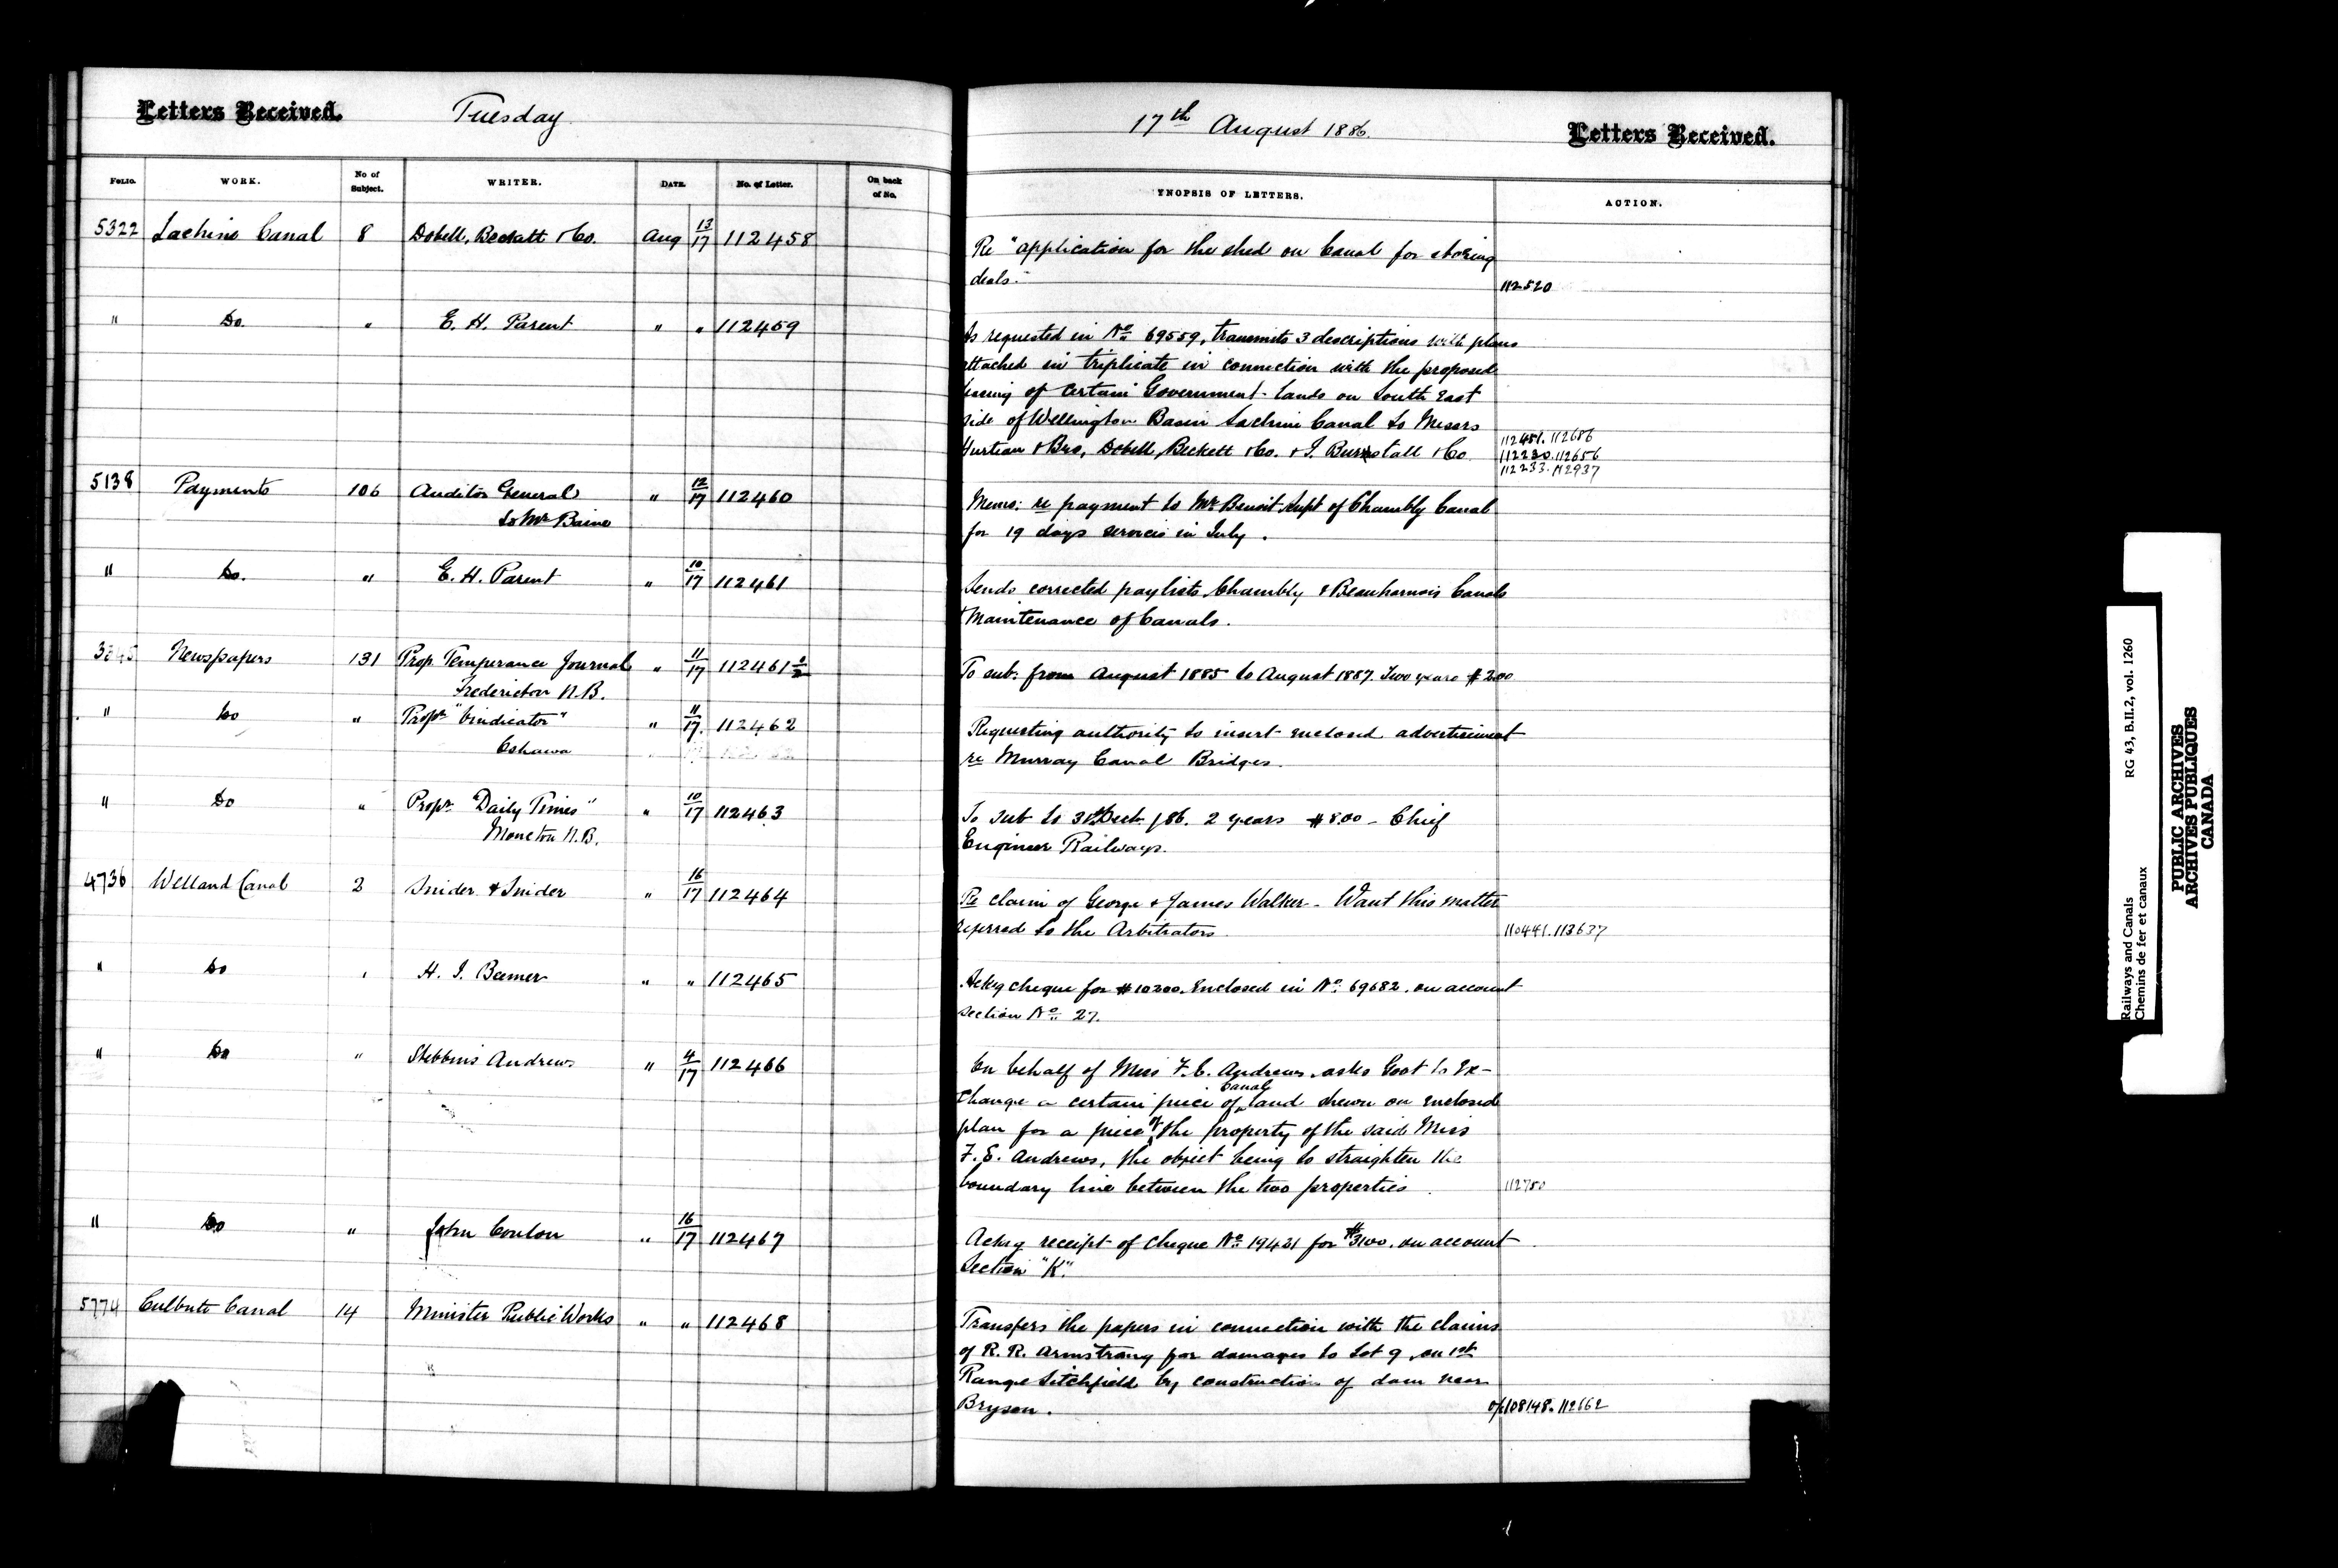 Letters Received.
Tuesday
17th August 1886.
Letters Received.
FOLIO. WORK. No of Subject. WRITER. DATE. No. of Letter. On back of No. YNOPSIS OF LETTERS. ACTION.
5322 Lachine Canal 8 Dobell, Beckett & Co. Aug 13/17 112458
Re "application for the shed on Canal for storing
deals."
112520
" Do. " E. H. Parent " " 112459
As requested in No. 69559, transmits 3 descriptions with plans
attached in triplicate in connection with the proposed
leasing of certain Government lands on South East
side of Wellington Basin Lachine Canal to Messrs
& Bro, Dobell, Beckett & Co. & J. Burstall & Co.
112451. 112686
112230. 112656
112233. 112937
5138 Payments 106 Auditor General " 12/17 112460
to Mr Baine
Memo: re payment to Mr Benoit Supt of Chambly Canal
for 19 days services in July.
" Do. " E. H. Parent " 10/17 112461
Sends corrected paylists, Chambly & Beauharnois Canals
Maintenance of Canals.
Newspapers 131 Prop. Temperance Journal " 11/17 112461 1/2
Fredericton N.B.
To sub: from August 1885 to August 1887. Two years $2.00
" Do " Propr "Vindicator" " 11/17. 112462
Oshawa
Requesting authority to insert enclosed advertisement
re Murray Canal Bridges.
" Do " Propr. "Daily Times" " 10/17 112463
Moncton N.B.
To sub to 31st Dect. /86. 2 years $8.00 - Chief
Engineer Railways.
4736 Welland Canal 2 Snider & Snider " 16/17 112464
Re claim of George & James Walker - Want this matter
referred to the Arbitrators.
110441. 113637
" Do " H. J. Beemer " " 112465
Ackg cheque for $10200. Enclosed in No. 69682. on account
section No. 27.
" Do " Stebbins Andrews " 4/17 112466
On behalf of Miss F. E. Andrews, asks Govt to Ex-
change a certain piece of canal land shewn on enclosed
plan for a piece of the property of the said Miss
F. E. Andrews, the object being to straighten the
boundary line between the two properties.
112750
" Do " John Conlon " 16/17 112467
Ackg receipt of cheque No. 19431 for $3100. on account
Section "K".
5774 Culbute Canal 14 Minister Public Works " " 112468
Transfers the papers in connection with the claims
of R. R. Armstrong for damages to Lot 9, on 1st
Range Litchfield by construction of dam near
Bryson.
of 108148. 112662
Railways and Canals RG 43, B.II.2, vol. 1260
Chemins de fer et canaux
PUBLIC ARCHIVES
ARCHIVES PUBLIQUES
CANADA